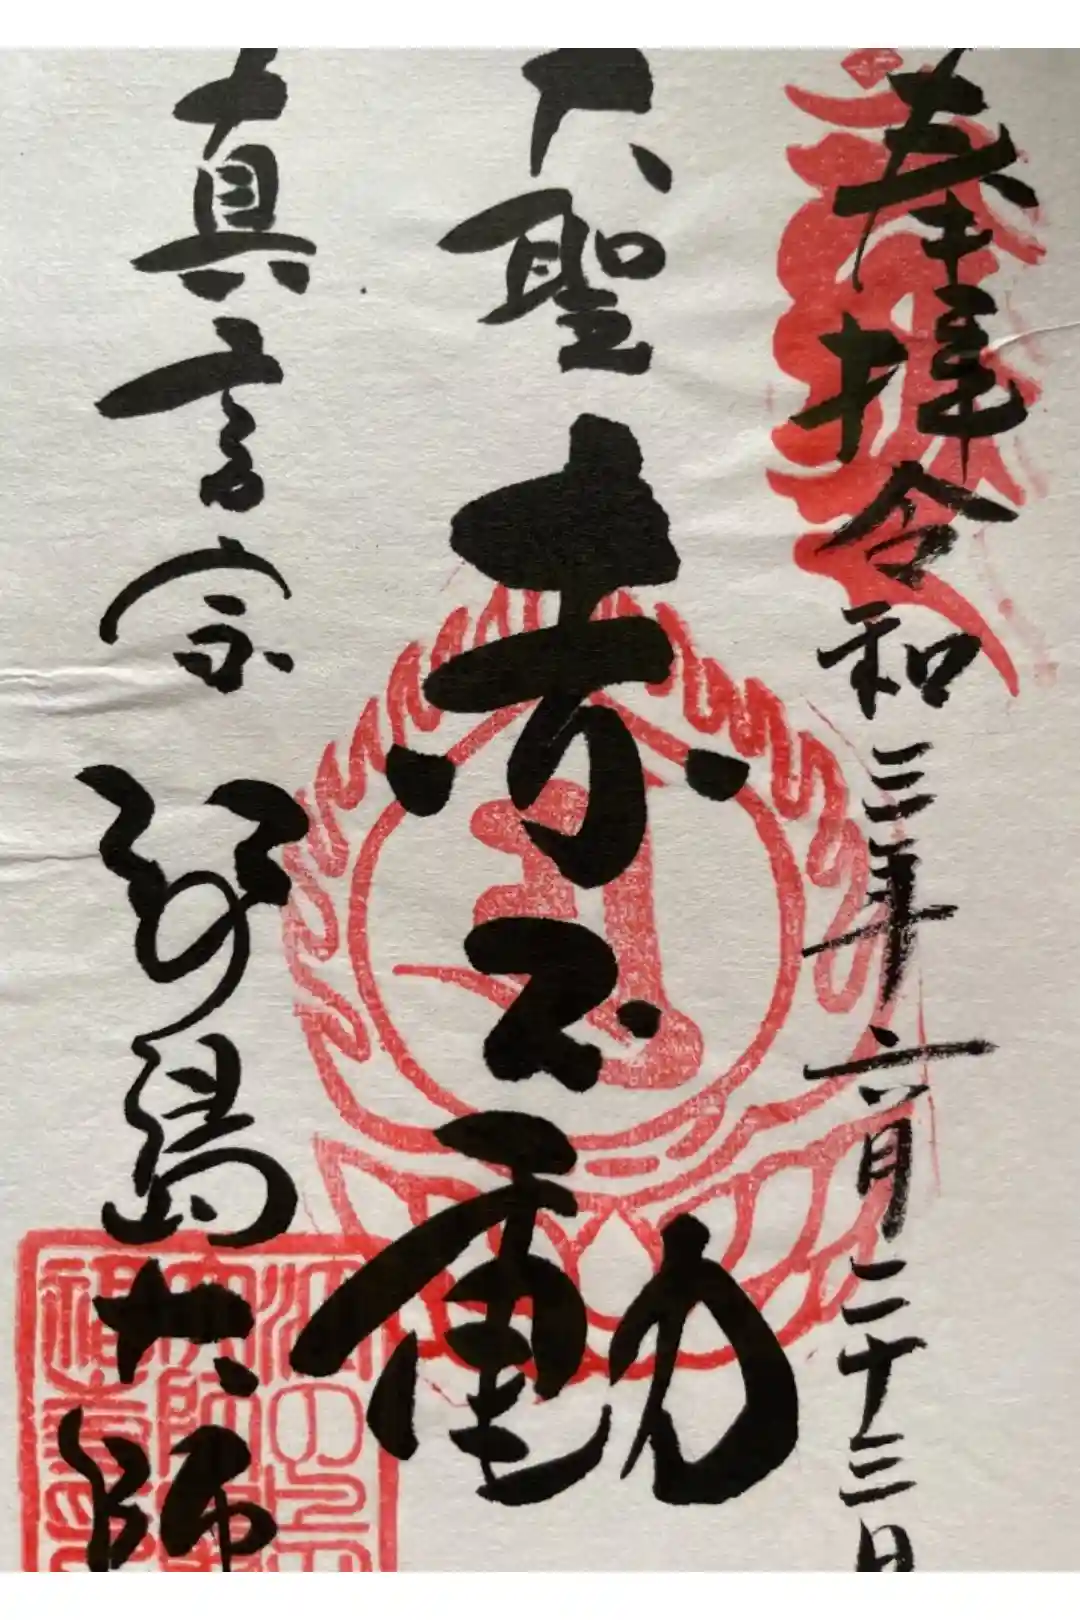 奉拝 令和三年六月二十三日
大聖 赤不動
真言宗 江島大師